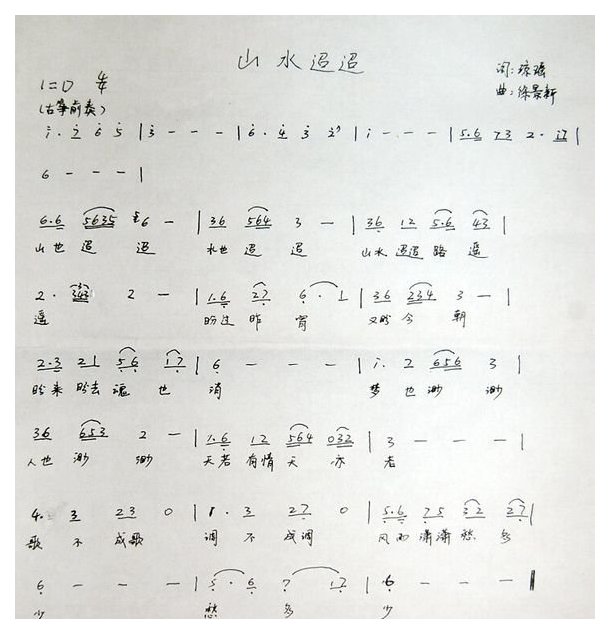 山水迢迢
1=D 4/4
词:琼瑶
(古筝前奏)
曲:徐景新
i. 2 6 5 | 3 - - - | 6. 4 3 2 | i - - - | 5.6 73 2. 17 |
6 - - - |
6.6 5635 6 - | 36 564 3 - | 36 12 5.6 43 |
山也迢 迢 水也迢 迢 山水迢迢路 遥
2. 343 2 - | 1.6 27 6. 1 | 36 234 3 - |
遥 盼过昨 宵 又盼今 朝
2.3 21 56 17 | 6 - - - | i. 2 656 3 |
盼来盼去魂 也 消 梦也渺 渺
36 653 2 - | 1.6 12 564 032 | 3 - - - |
人也渺 渺 天若有情天 亦 老
4. 3 23 0 | 1. 3 27 0 | 5.6 75 32 27 |
歌 不 成歌 调 不 成调 风雨潇潇愁 多
6 - - - | 5. 6 7 17 | 6 - - - |
少 愁 多 少